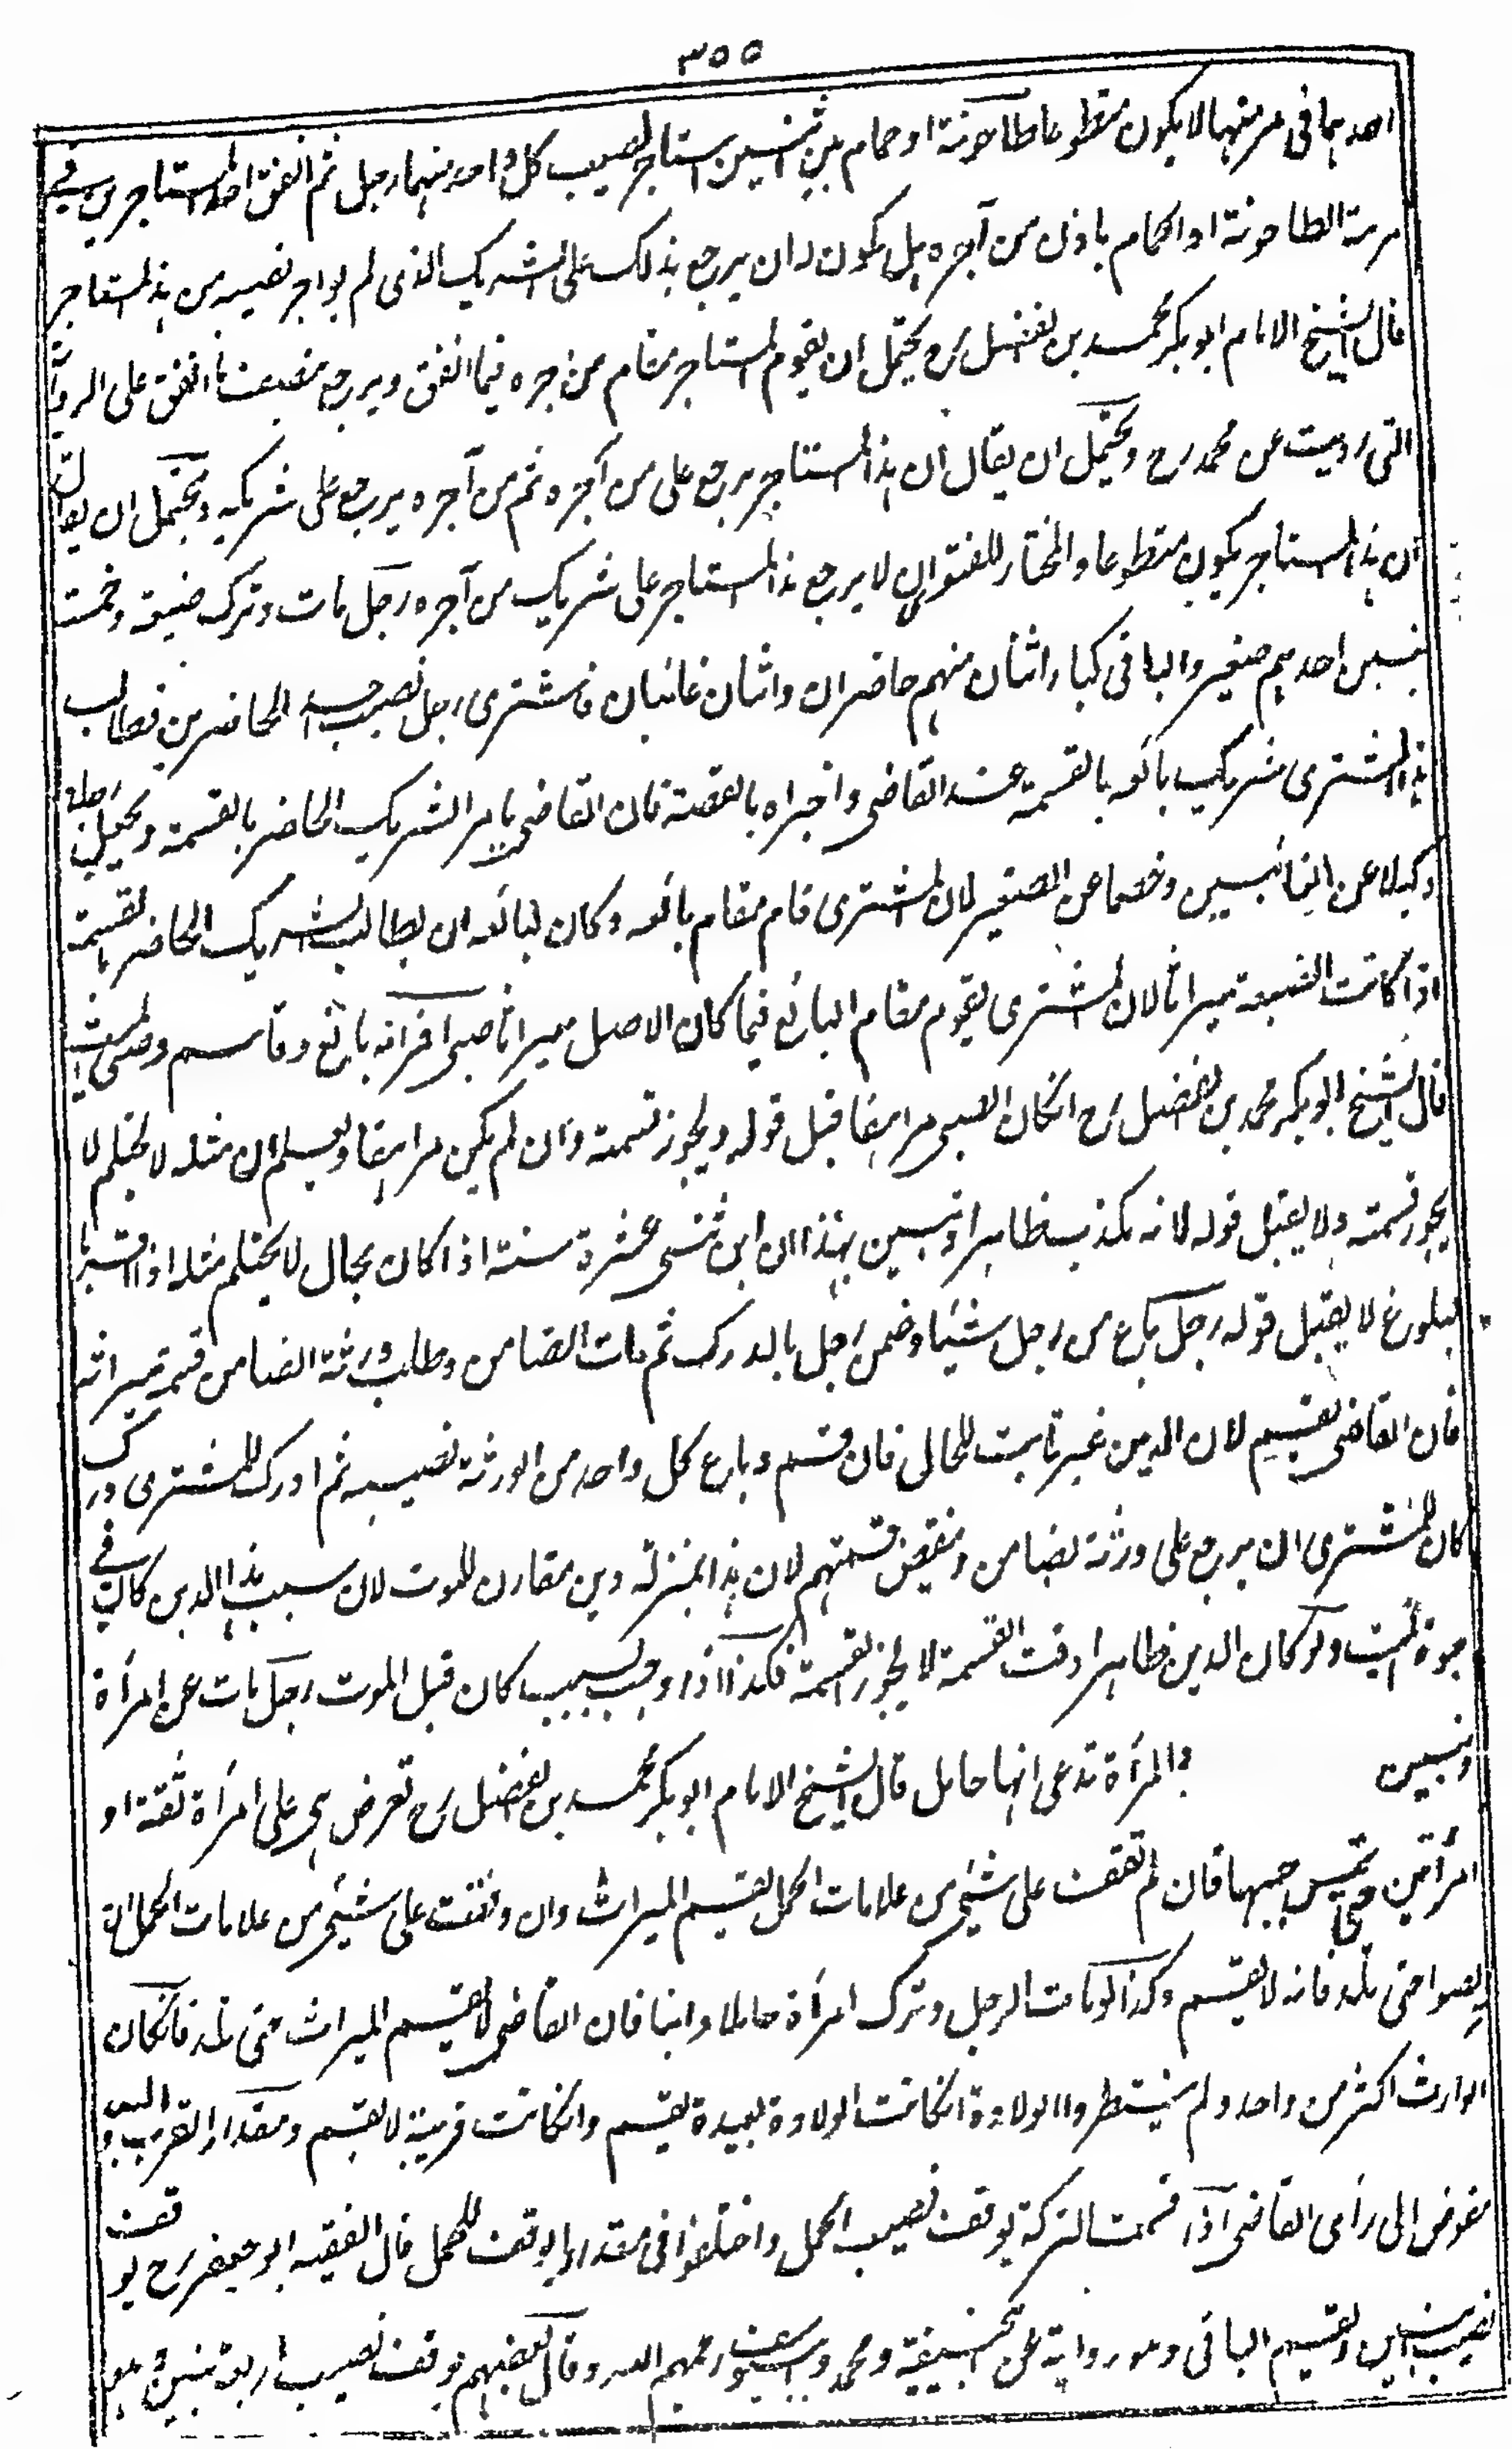 ٣٥٥
احدهما فى مرمتها لا يكون متطوعا طاحونة او حمام بين اثنين استاجر نصيب كل واحد منهما رجل ثم انفق احد المستاجرين فى
مرمة الطاحونة او الحمام باذن من آجره هل يكون له ان يرجع بذلك على الشريك الذى لم يواجر نصيبه من هذا المستاجر
قال الشيخ الامام ابو بكر محمد بن الفضل رح يحتمل ان يقوم المستاجر مقام من اجره فيما انفق ويرجع بنصف ما انفق على الرواية
التى رويت عن محمد رح ويحتمل ان يقال ان هذا المستاجر يرجع على من آجره ثم من آجره يرجع على شريكه ويحتمل ان يقال
ان هذا المستاجر يكون متطوعا والمختار للفتوى ان لا يرجع هذا المستاجر على شريك من آجره رجل مات وترك ضيعة وخمسة
بنين احدهم صغير والباقى كبار اثنان منهم حاضران واثنان غائبان فاشترى رجل نصيب احد الحاضرين فطالب
هذا المشترى شريك بائعه بالقسمة عند القاضى واخبراه بالقصة فان القاضى يامر الشريك الحاضر بالقسمة ويجعل
وكيلا عن الغائبين وخصما عن الصغير لان المشترى قام مقام بائعه وكان لبائعه ان يطالب الشريك الحاضر بالقسمة
اذا كانت الضيعة ميراثا لان المشترى يقوم مقام البائع فيما كان الاصل ميراثا صبى اقر انه بالغ وقاسم وصى الميت
قال الشيخ ابو بكر محمد بن الفضل رح انكان الصبى مراهقا قبل قوله ويجوز قسمته وان لم يكن مراهقا ويعلم ان مثله لا يحتلم لا
يجوز قسمته ولا يقبل قوله لانه مكذب ظاهرا وتبين بهذا ان ابن اثنتى عشرة سنة اذا كان بحال لا يحتلم مثله اذا اقر
بالبلوغ لا يقبل قوله رجل باع من رجل شيئا وضمن رجل بالدرك ثم مات الضامن وطلب ورثة الضامن قسمة ميراثه
فان القاضى يقسم لان الدين غير ثابت للحال فان قسم وباع كل واحد من الورثة نصيبه ثم ادرك المشترى درك
كان للمشترى ان يرجع على ورثة الضامن وينقض قسمتهم لان هذا بمنزلة دين مقارن للموت لان سبب هذا الدين كان فى
حيوة الميت ولو كان الدين ظاهرا وقت القسمة لا يجوز القسمة فكذا اذا وجب بسبب كان قبل الموت رجل مات عن امرأة
وبنين والمرأة تدعى انها حامل قال الشيخ الامام ابو بكر محمد بن الفضل رح تعرض هى على امرأة ثقة او
امرأتين حتى تمس جنبها فان لم تقف على شيئ من علامات الحمل يقسم الميراث وان وقفت على شيئ من علامات الحمل ان
تربصوا حتى تلد فانه لا يقسم وكذا لو مات الرجل وترك امرأة حاملا وابنا فان القاضى لا يقسم الميراث حتى تلد فانكان
الوارث اكثر من واحد ولم ينتظروا الولادة انكانت الولادة بعيدة يقسم وانكانت قريبة لا يقسم ومقدار القرب والبعد
مفوض الى رأى القاضى اذا قسمت التركة يوقف نصيب الحمل واختلفوا فى مقدار ما يوقف للحمل قال الفقيه ابو جعفر رح يوقف
نصيب ابنين ويقسم الباقى وهو رواية عن ابى حنيفة ومحمد وابى يوسف رحمهم الله وقال بعضهم يوقف نصيب اربعة بنين وهو